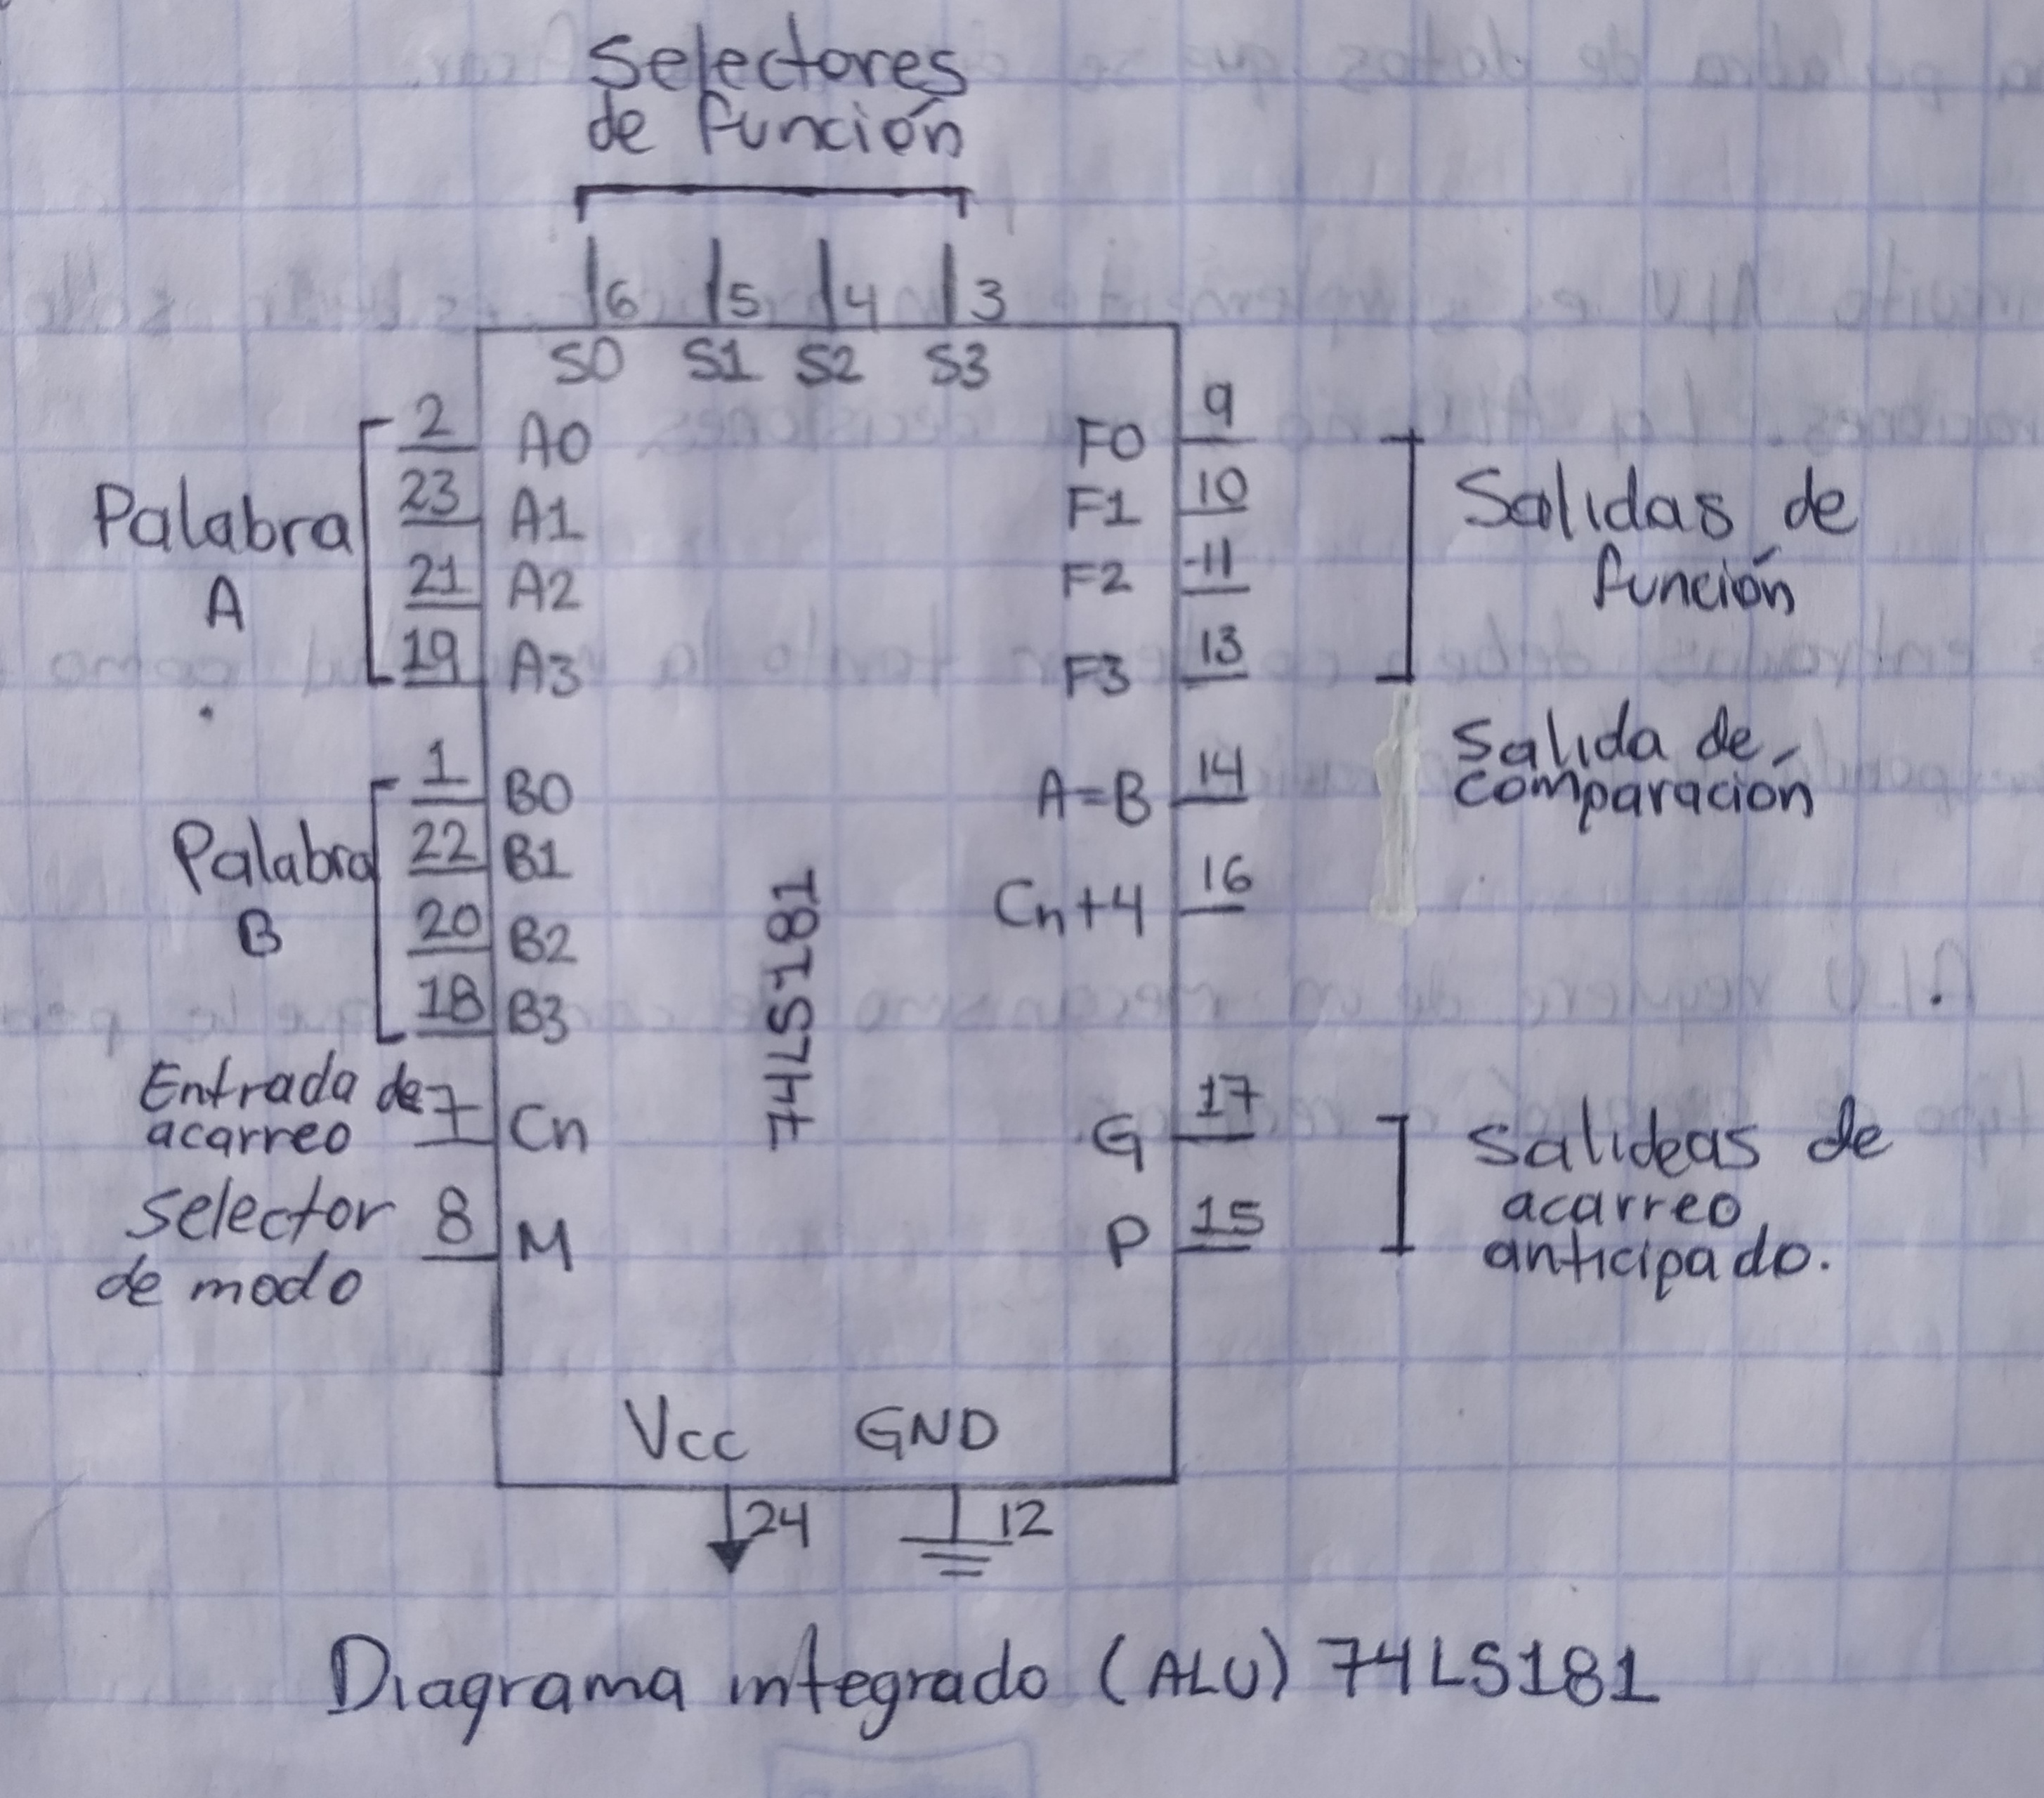 Selectores
de función
6 5 4 3
S0 S1 S2 S3
Palabra
A
2 A0
23 A1
21 A2
19 A3
Palabra
B
1 B0
22 B1
20 B2
18 B3
Entrada de
acarreo
7 Cn
Selector
de modo
8 M
74LS181
F0 9
F1 10
F2 11
F3 13
Salidas de
función
A=B 14
Salida de
comparación
Cn+4 16
G 17
P 15
Salideas de
acarreo
anticipado.
Vcc GND
24 12
Diagrama integrado (ALU) 74LS181